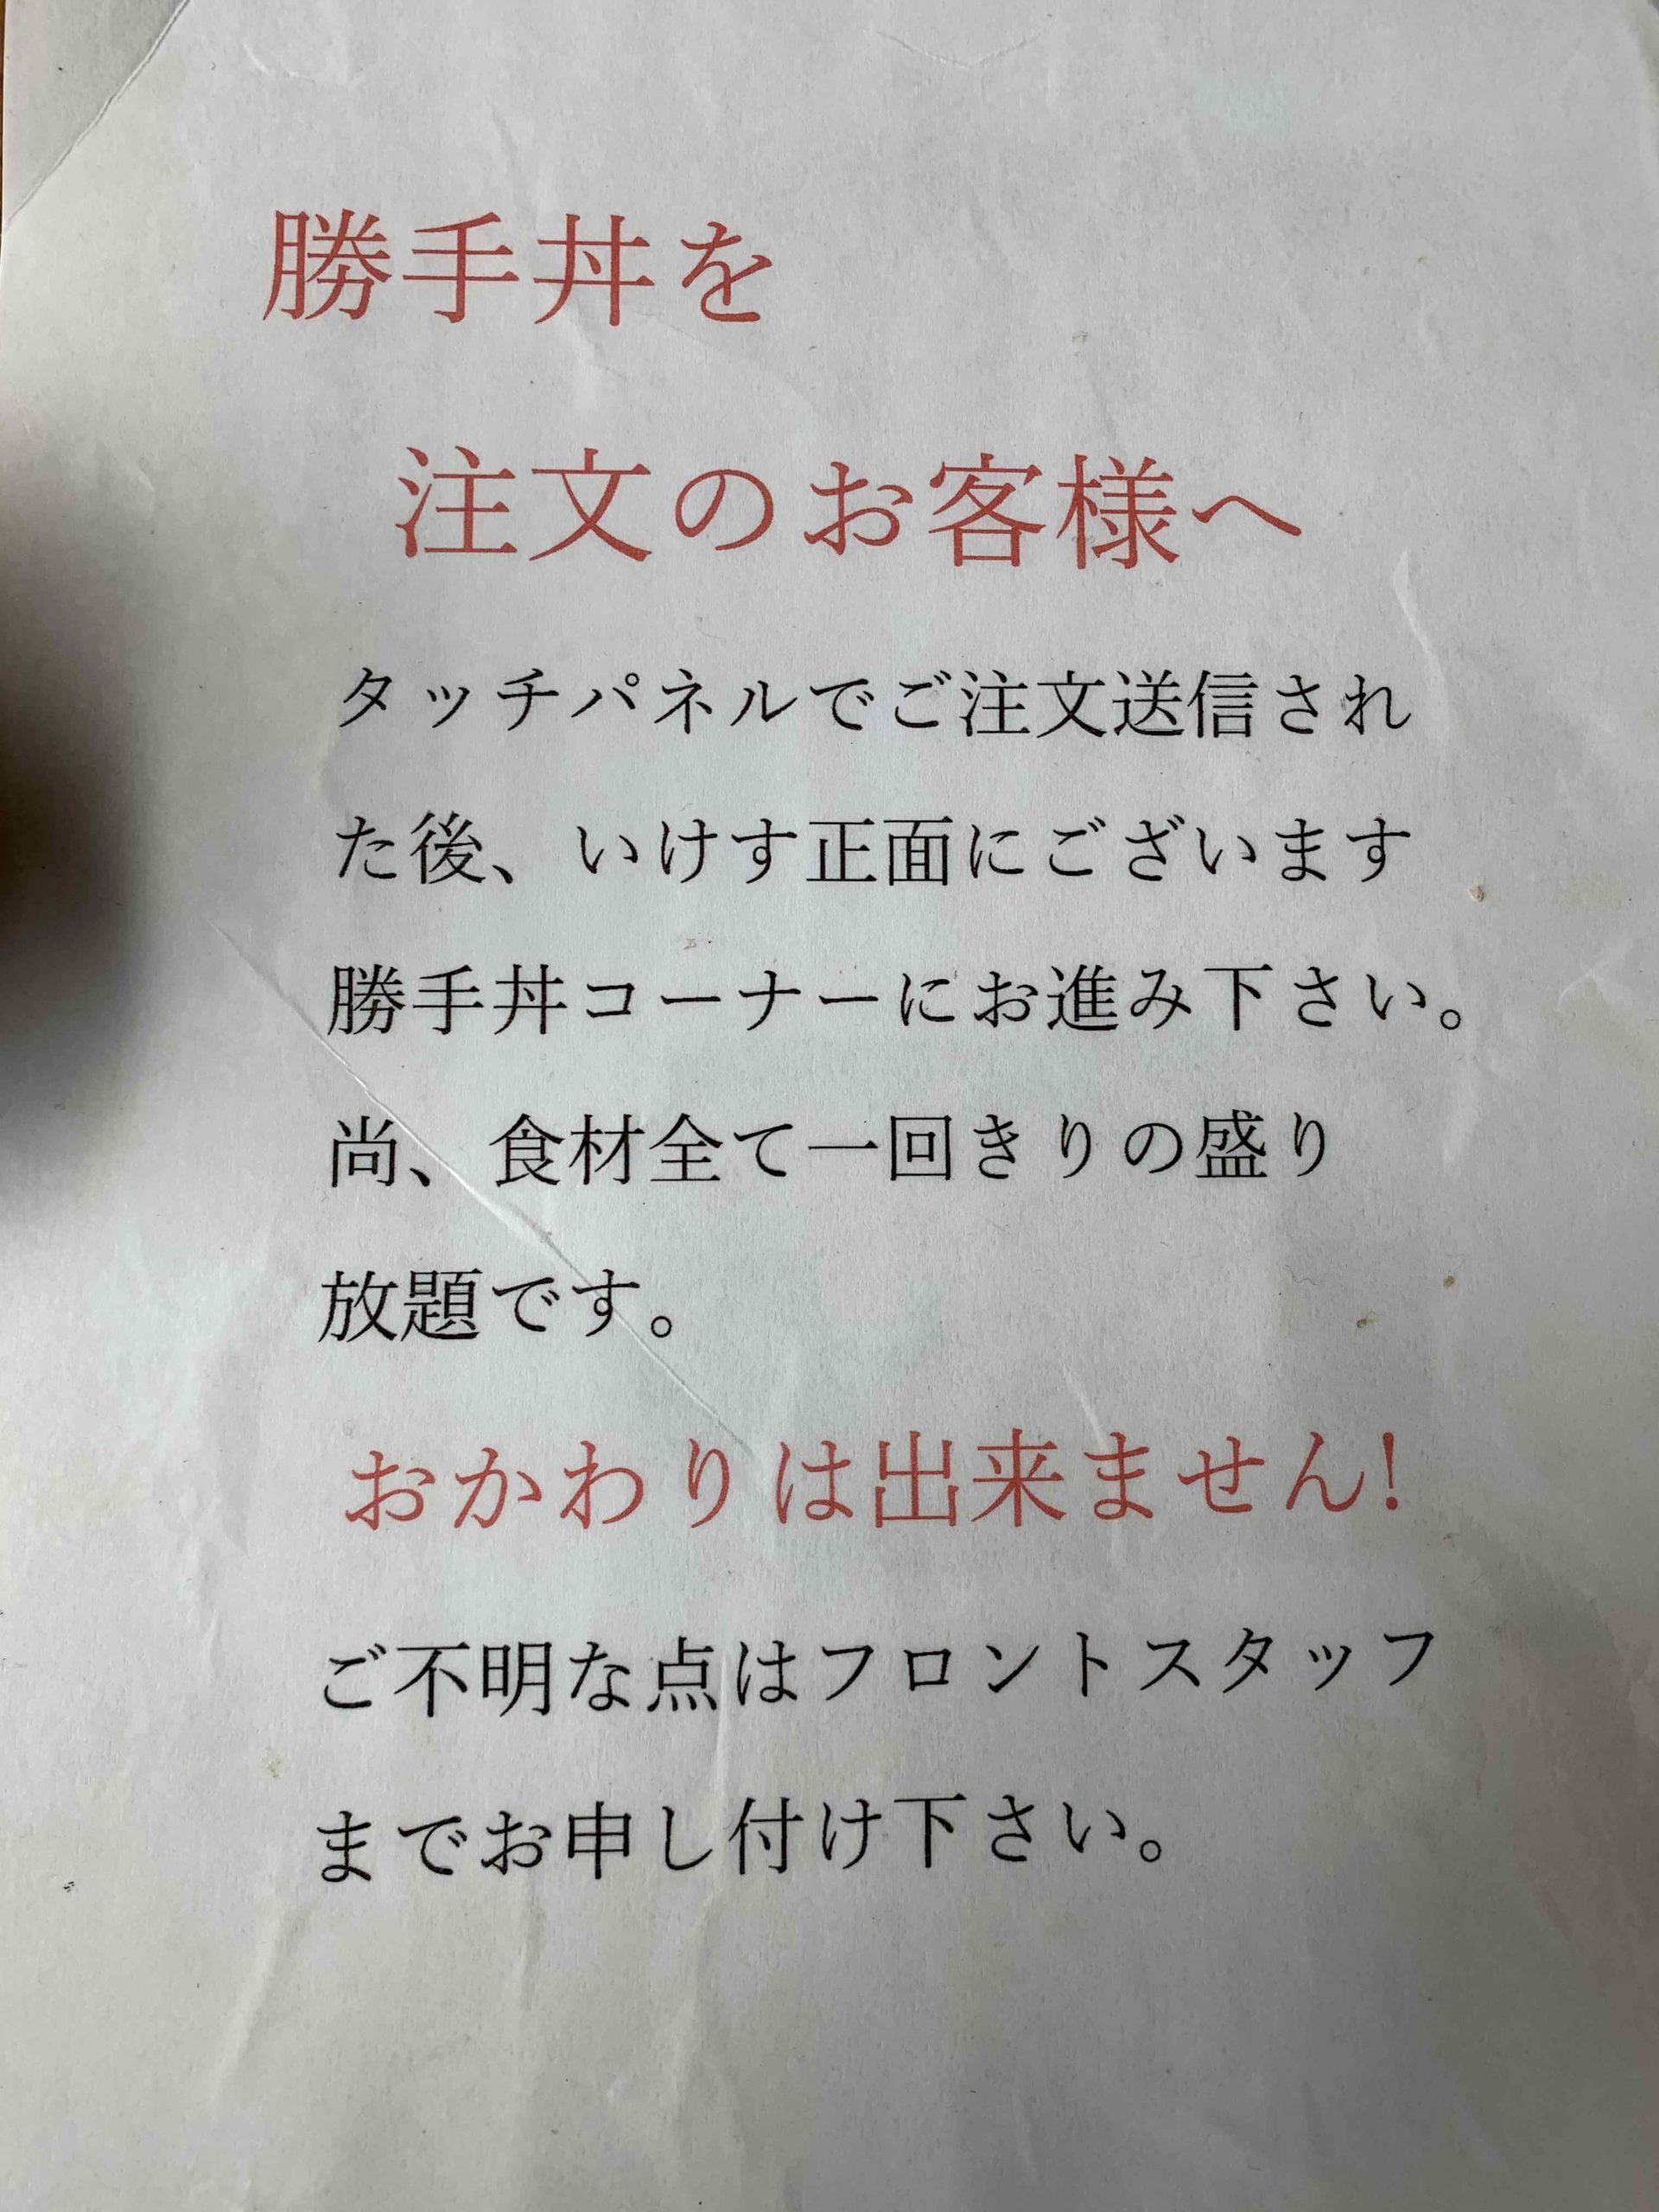 勝手丼を
注文のお客様へ
タッチパネルでご注文送信され
た後、いけす正面にございます
勝手丼コーナーにお進み下さい。
尚、食材全て一回きりの盛り
放題です。
おかわりは出来ません!
ご不明な点はフロントスタッフ
までお申し付け下さい。